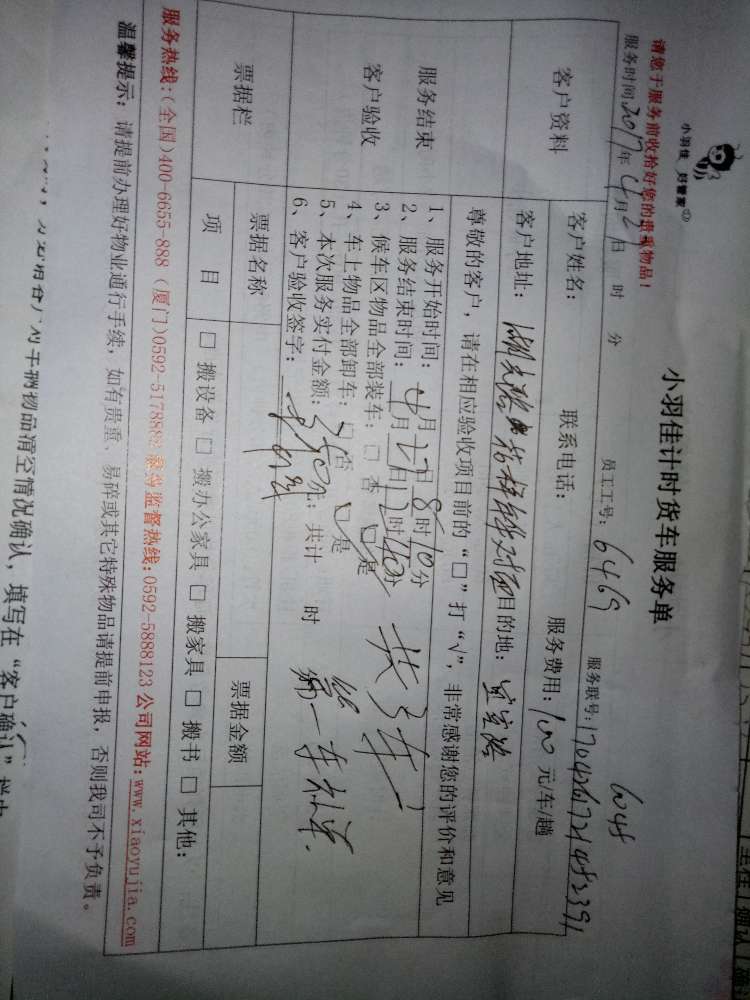 小羽佳 好管家
小羽佳计时货车服务单
请您于服务前收拾好您的贵重物品!
6045
服务时间:2017年4月27日 时 分 员工工号:6469 服务联号:
客户资料
客户姓名: 联系电话: 服务费用:100元/车/趟
客户地址: 目的地:
尊敬的客户,请在相应验收项目前的“□”打“√”,非常感谢您的评价和意见
服务结束
客户验收
1、服务开始时间:4月27日8时10分
2、服务结束时间:4月27日12时40分
3、候车区物品全部装车:□否 □是 共3车
4、车上物品全部卸车:□否 □是
5、本次服务实付金额:350元;共计 时
6、客户验收签字:
第一车
票据栏
票据名称 票据金额
项 目 □ 搬设备 □ 搬办公家具 □ 搬家具 □ 搬书 □ 其他:
服务热线:(全国)400-6655-888 (厦门)0592-5178888 服务监督热线:0592-5888123 公司网站:www.xiaoyujia.com
温馨提示:请提前办理好物业通行手续,如有贵重、易碎或其它特殊物品请提前申报,否则我司不予负责。
车辆物品清空情况确认,填写在“客户确认”栏中